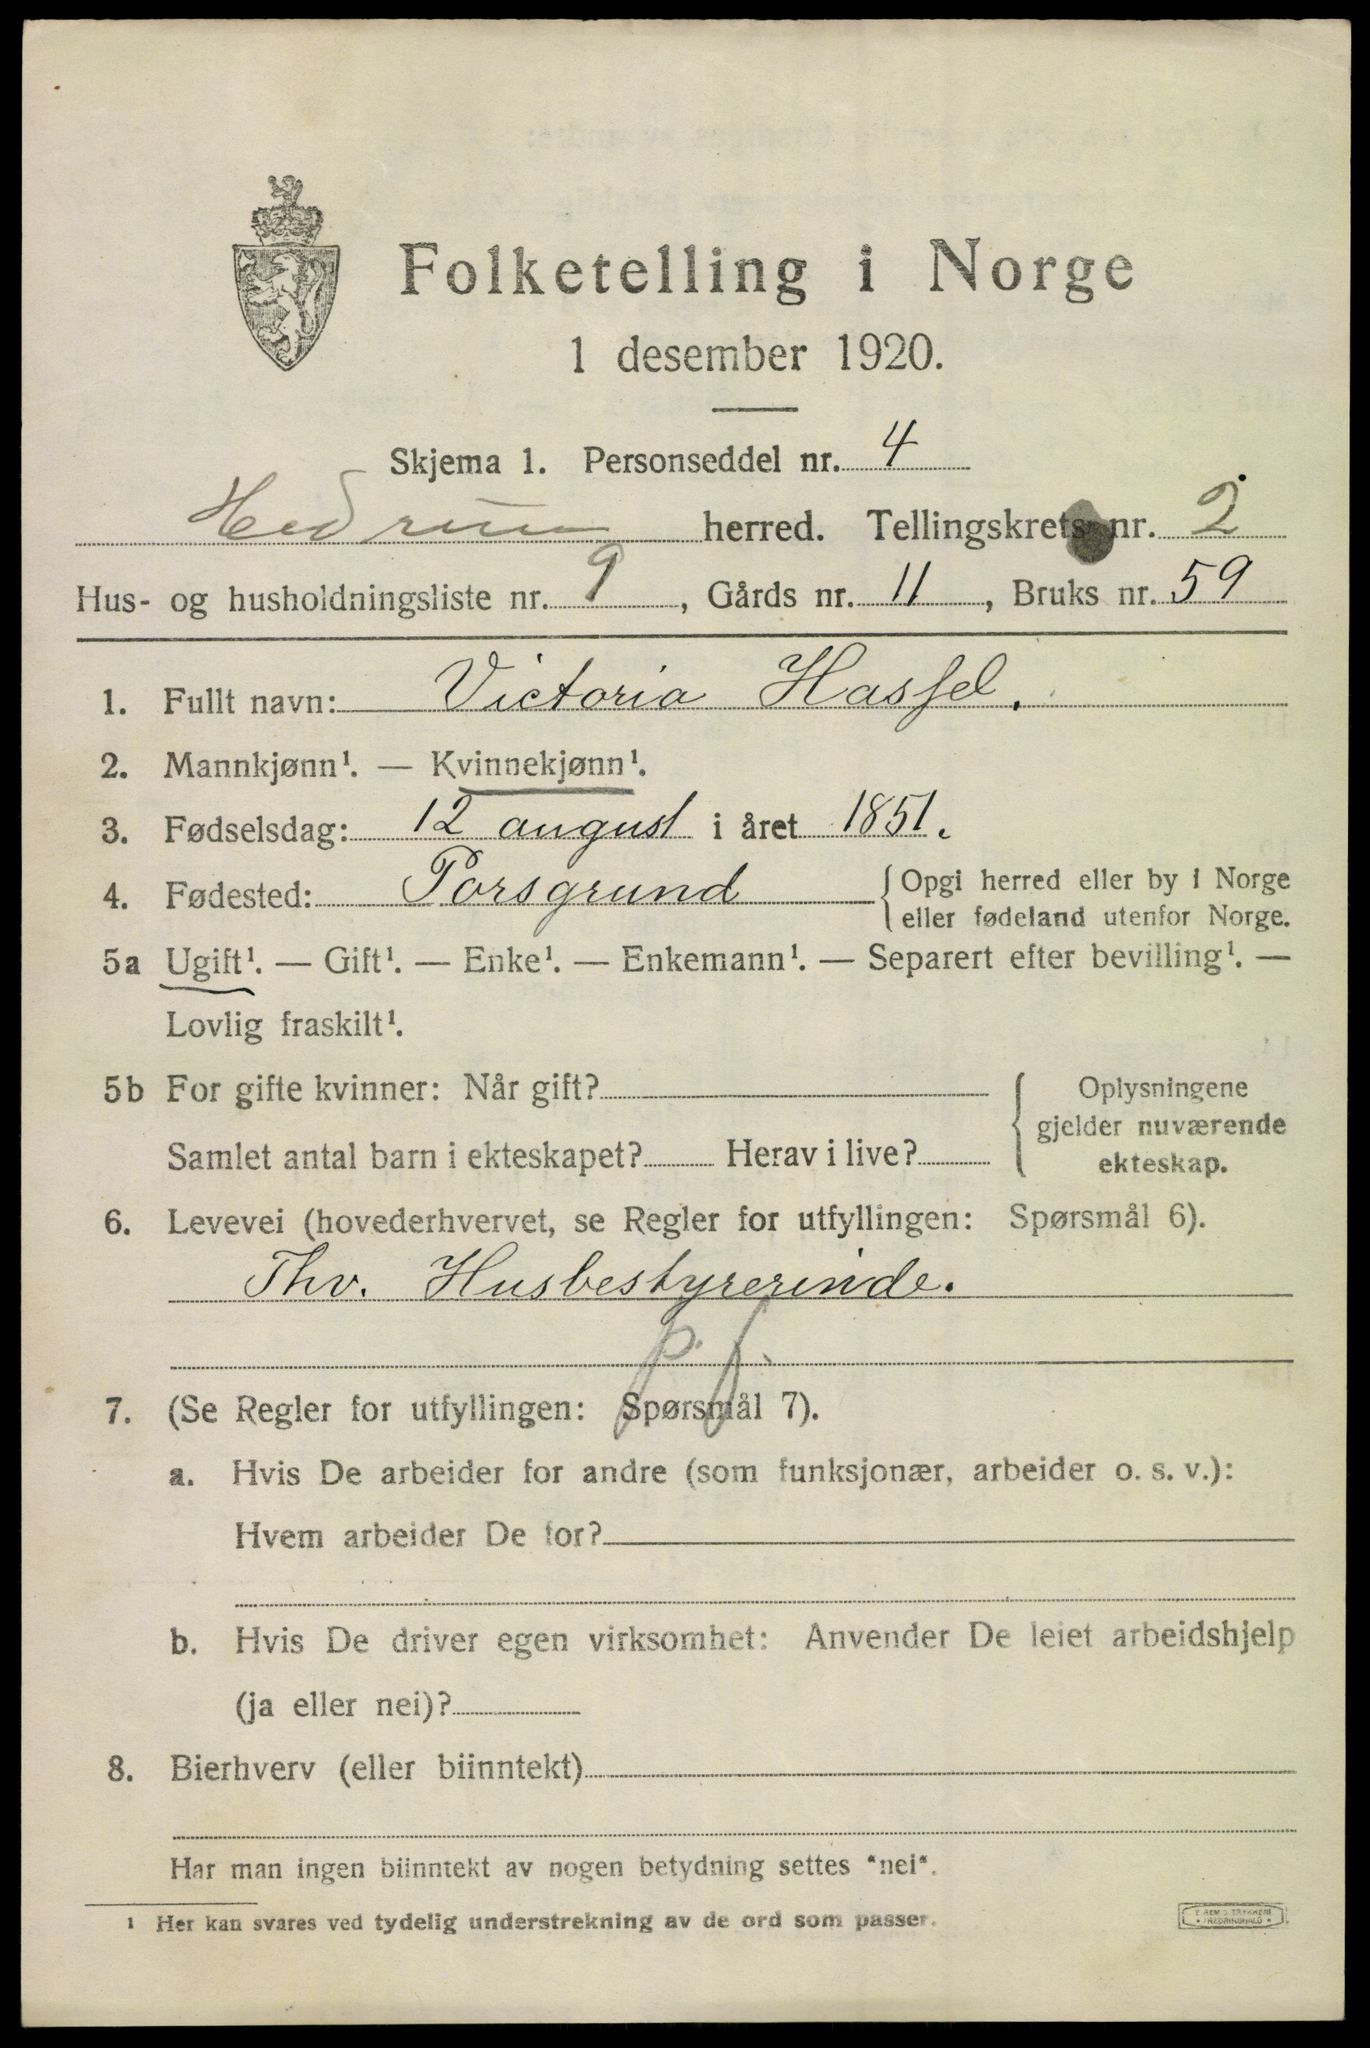 Folketelling i Norge
1 desember 1920.
Skjema 1. Personseddel nr. 4
Hedrum herred. Tellingskrets nr. 2
Hus- og husholdningsliste nr. 9, Gårds nr. 11, Bruks nr. 59
1. Fullt navn: Victoria Hassel.
2. Mannkjønn¹. — Kvinnekjønn¹.
3. Fødselsdag: 12 august i året 1851.
4. Fødested: Porsgrund {Opgi herred eller by i Norge
eller fødeland utenfor Norge.
5a Ugift¹. — Gift¹. — Enke¹. — Enkemann¹. — Separert efter bevilling¹. —
Lovlig fraskilt¹.
5b For gifte kvinner: Når gift? Oplysningene
gjelder nuværende
Samlet antal barn i ekteskapet? Herav i live? ekteskap.
6. Levevei (hovederhvervet, se Regler for utfyllingen: Spørsmål 6).
Thv. Husbestyrerinde.
p. f.
7. (Se Regler for utfyllingen: Spørsmål 7).
a. Hvis De arbeider for andre (som funksjonær, arbeider o. s. v.):
Hvem arbeider De for?
b. Hvis De driver egen virksomhet: Anvender De leiet arbeidshjelp
(ja eller nei)?
8. Bierhverv (eller biinntekt)
Har man ingen biinntekt av nogen betydning settes "nei".
¹ Her kan svares ved tydelig understrekning av de ord som passer.